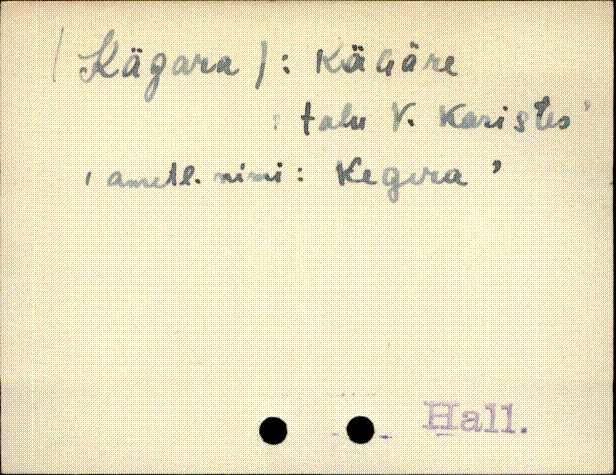 (Kägara): Käɢäre
: talu V. Karistes'
, ametl. nimi: Kegera'
Hall.